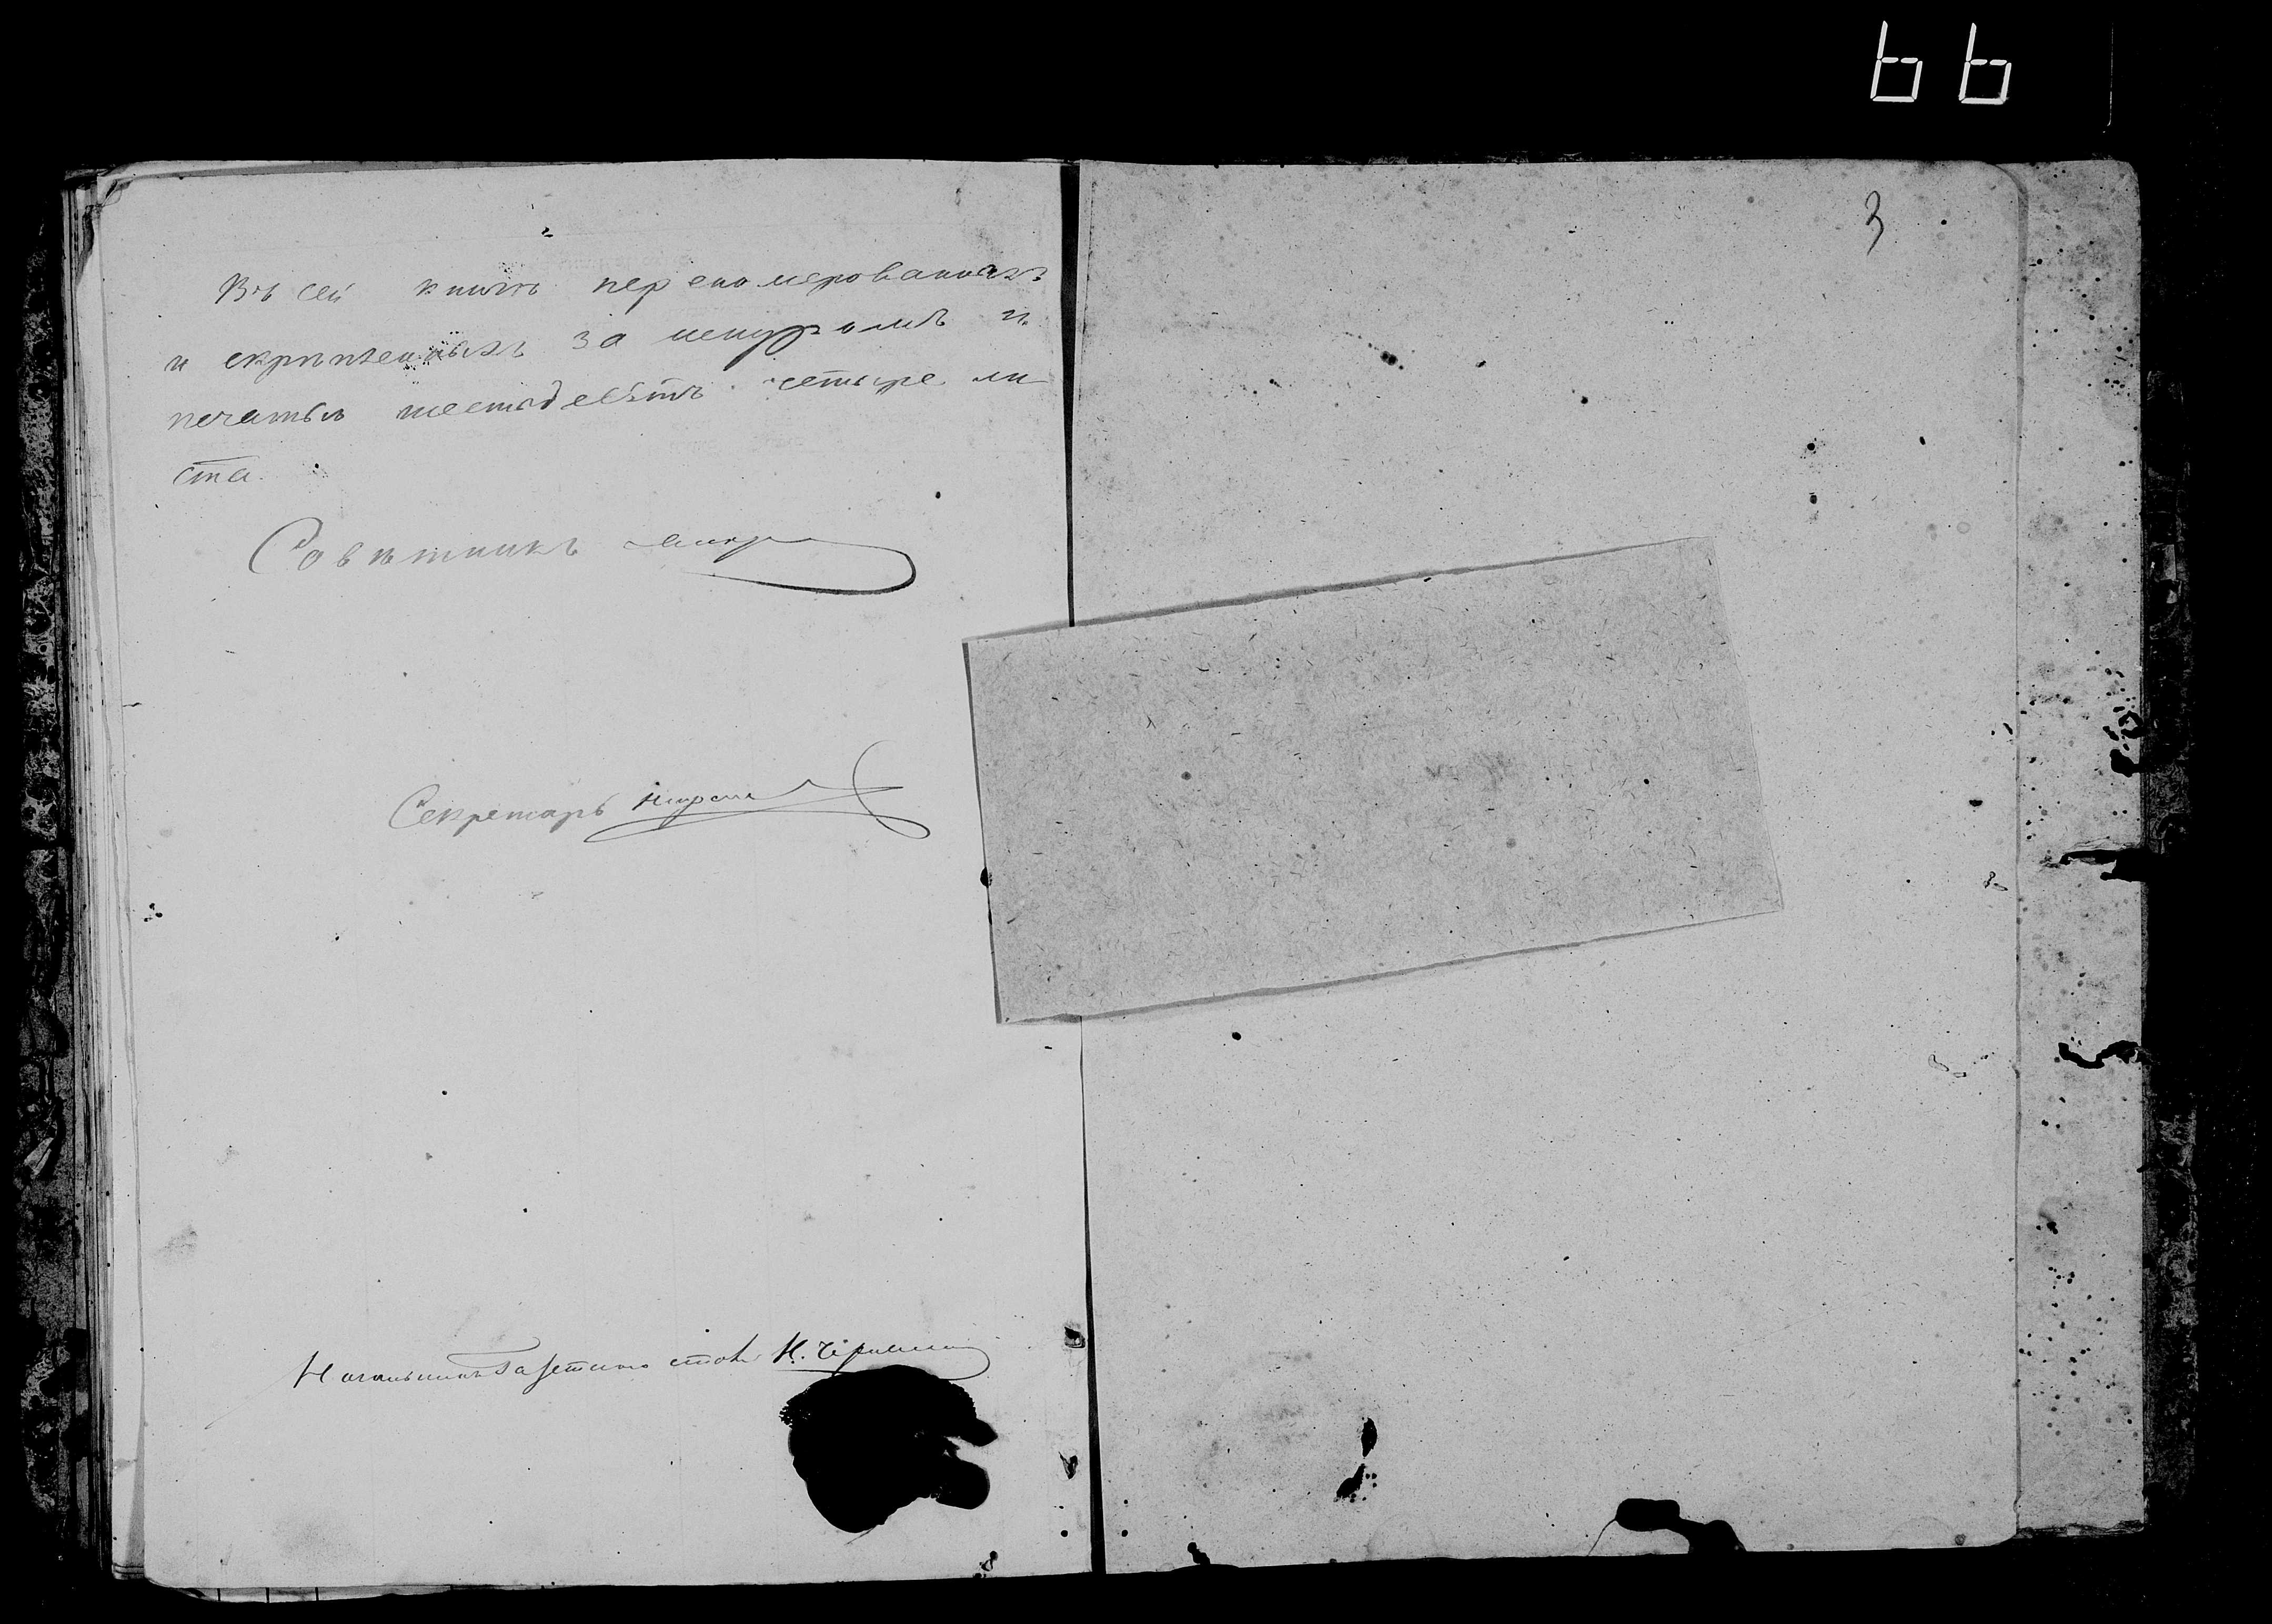 66
3
Въ сей книгѣ переномерованныхъ
и скрѣпленныхъ за шнуромъ и
печатью шестьдесятъ четыре ли
ста.
Совѣтникъ
Секретарь
Начальникъ Газетнаго стола Н.